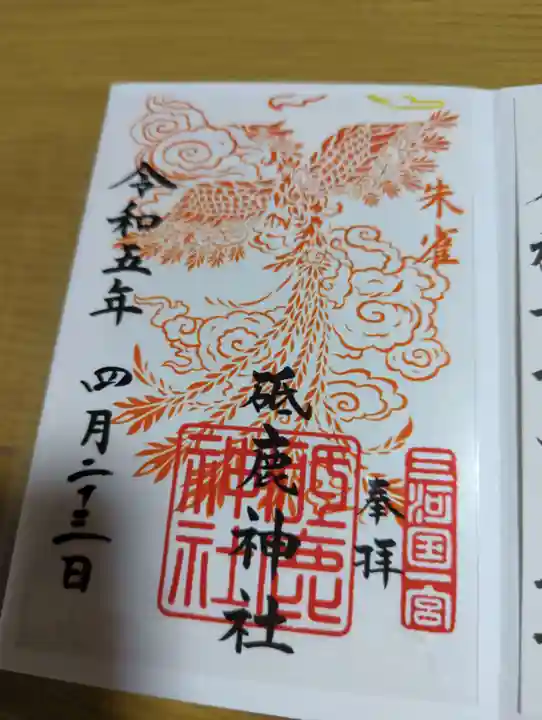 朱雀
三河国一宮
奉拝
砥鹿神社
砥鹿神社
令和五年 四月二十三日